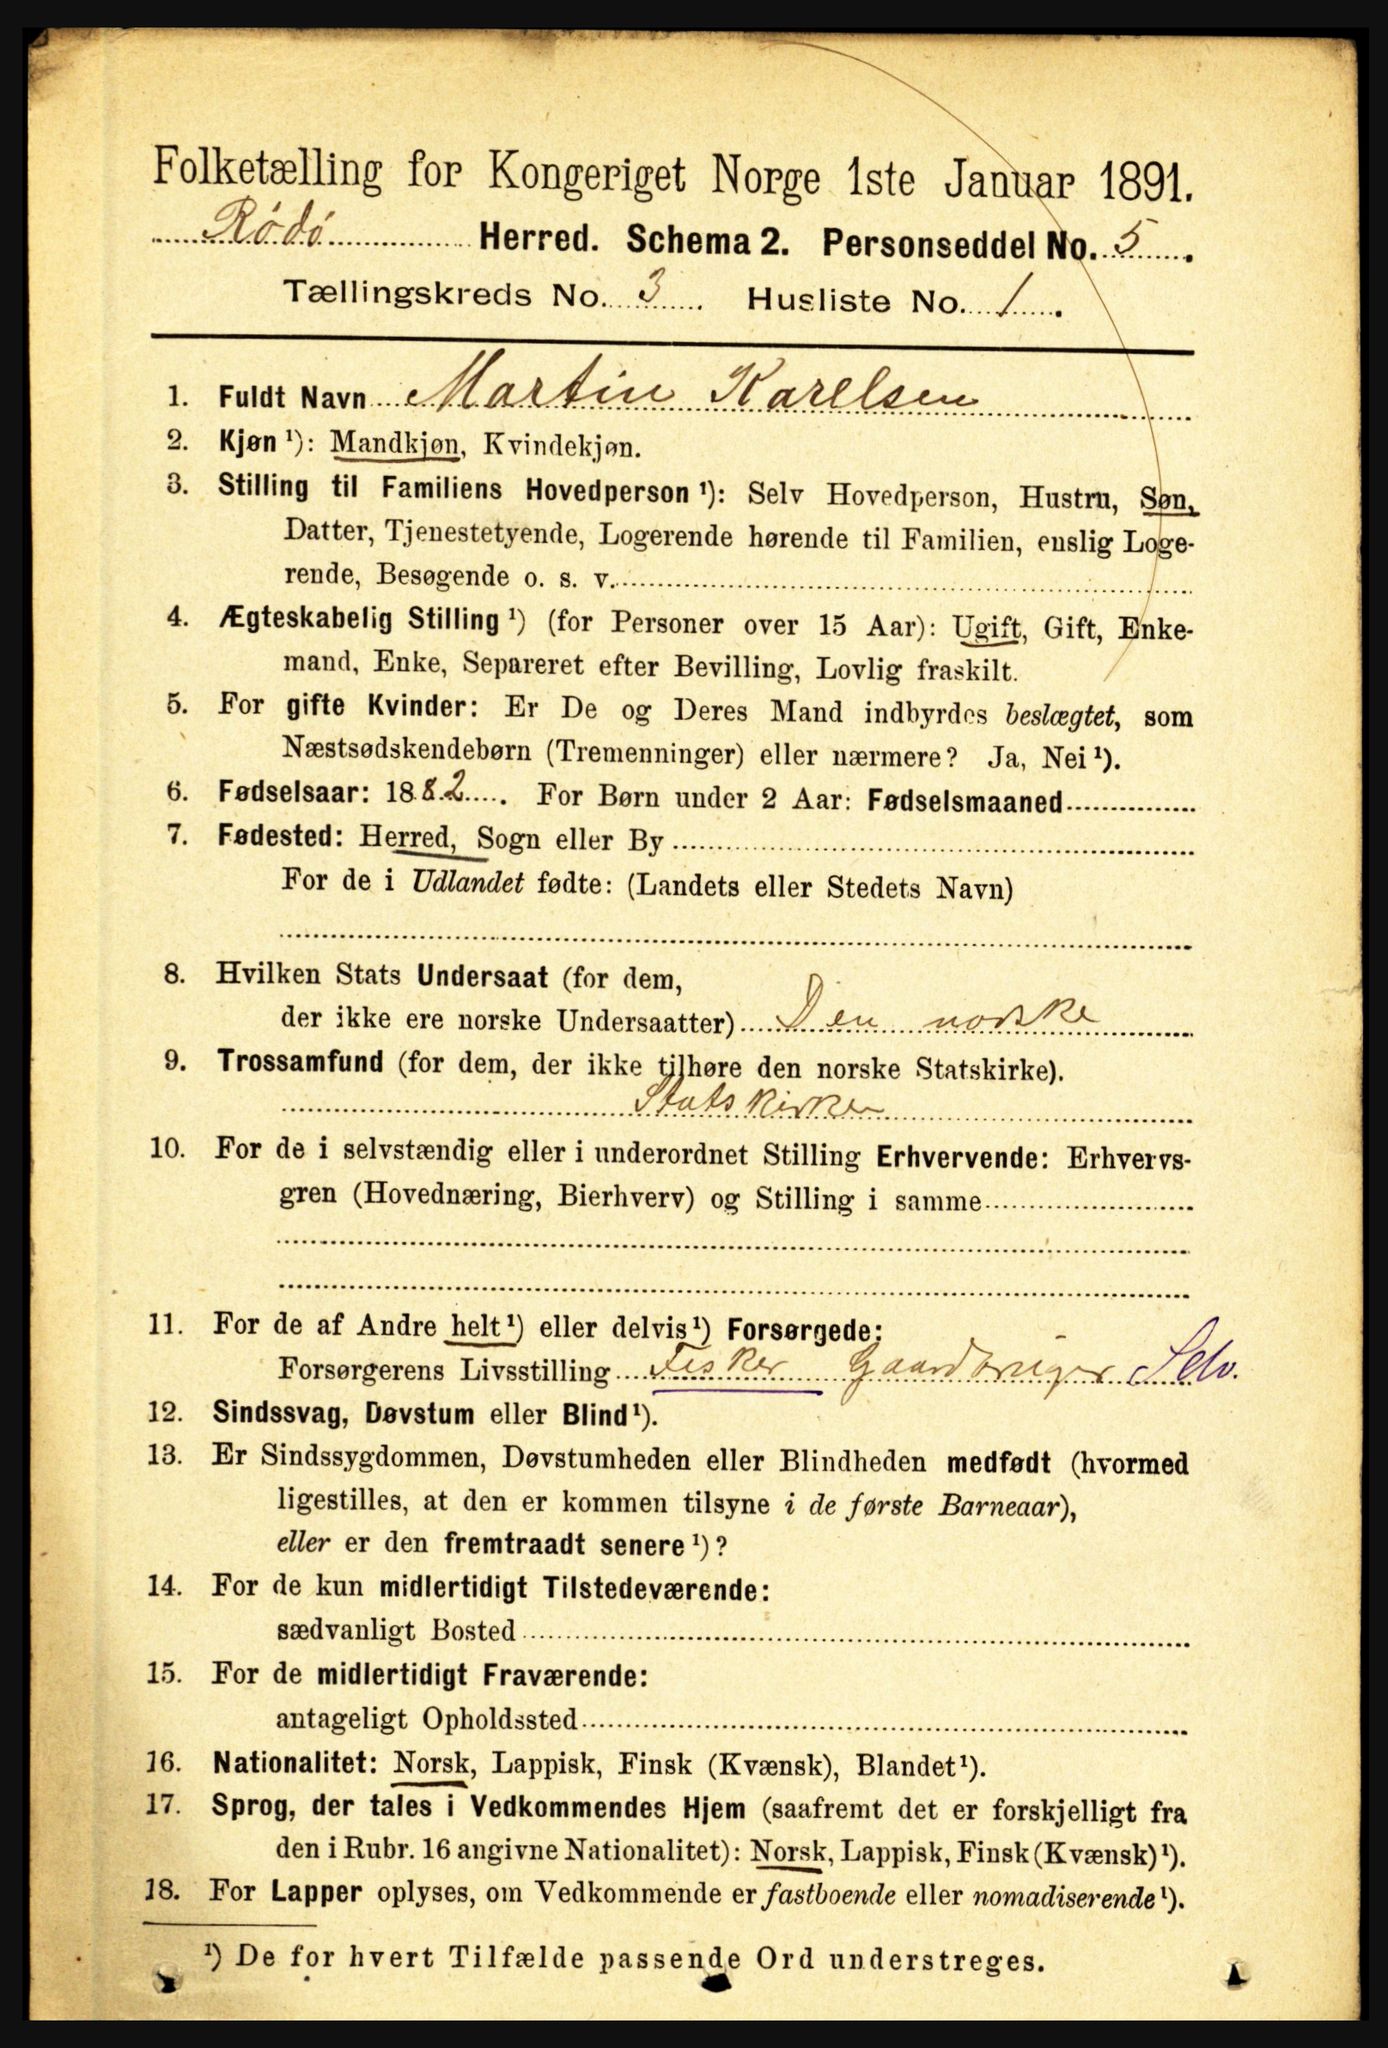 Folketælling for Kongeriget Norge 1ste Januar 1891.
Rödö Herred. Schema 2. Personseddel No. 5.
Tællingskreds No. 3 Husliste No. 1.
1. Fuldt Navn Martin Karelsen
2. Kjøn ¹): Mandkjøn, Kvindekjøn.
3. Stilling til Familiens Hovedperson ¹): Selv Hovedperson, Hustru, Søn,
Datter, Tjenestetyende, Logerende hørende til Familien, enslig Loge-
rende, Besøgende o. s. v.
4. Ægteskabelig Stilling ¹) (for Personer over 15 Aar): Ugift, Gift, Enke-
mand, Enke, Separeret efter Bevilling, Lovlig fraskilt.
5. For gifte Kvinder: Er De og Deres Mand indbyrdes beslægtet, som
Næstsødskendebørn (Tremenninger) eller nærmere? Ja, Nei ¹).
6. Fødselsaar: 1882. For Børn under 2 Aar: Fødselsmaaned
7. Fødested: Herred, Sogn eller By
For de i Udlandet fødte: (Landets eller Stedets Navn)
8. Hvilken Stats Undersaat (for dem,
der ikke ere norske Undersaatter) Den norske
9. Trossamfund (for dem, der ikke tilhøre den norske Statskirke).
Statskirken
10. For de i selvstændig eller i underordnet Stilling Erhvervende: Erhvervs-
gren (Hovednæring, Bierhverv) og Stilling i samme
11. For de af Andre helt ¹) eller delvis ¹) Forsørgede:
Forsørgerens Livsstilling Fisker Gaardbruger Selv.
12. Sindssvag, Døvstum eller Blind ¹).
13. Er Sindssygdommen, Døvstumheden eller Blindheden medfødt (hvormed
ligestilles, at den er kommen tilsyne i de første Barneaar),
eller er den fremtraadt senere ¹)?
14. For de kun midlertidigt Tilstedeværende:
sædvanligt Bosted
15. For de midlertidigt Fraværende:
antageligt Opholdssted
16. Nationalitet: Norsk, Lappisk, Finsk (Kvænsk), Blandet ¹).
17. Sprog, der tales i Vedkommendes Hjem (saafremt det er forskjelligt fra
den i Rubr. 16 angivne Nationalitet): Norsk, Lappisk, Finsk (Kvænsk) ¹).
18. For Lapper oplyses, om Vedkommende er fastboende eller nomadiserende ¹).
¹) De for hvert Tilfælde passende Ord understreges.